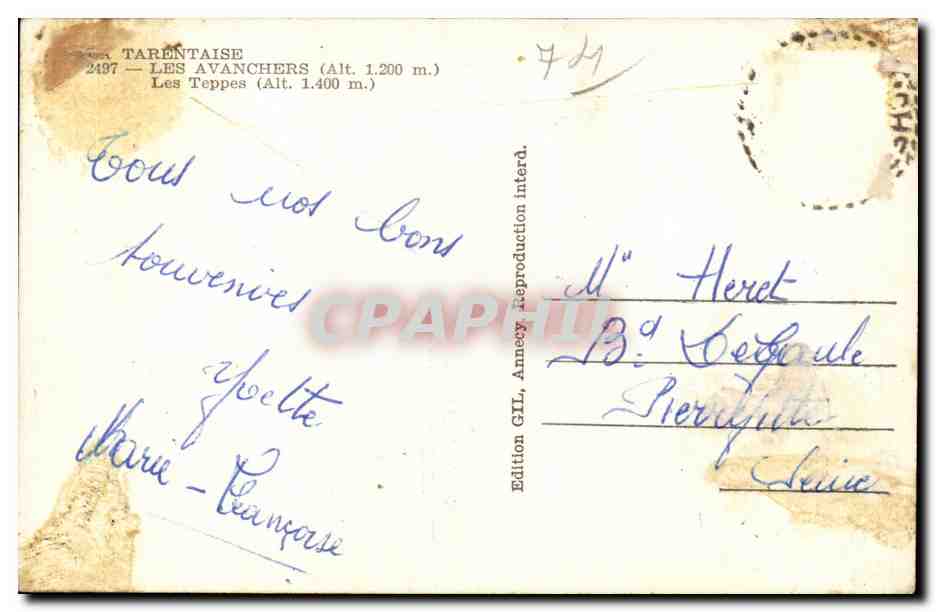 LA TARENTAISE
2497 — LES AVANCHERS (Alt. 1.200 m.)
Les Teppes (Alt. 1.400 m.)
74
Tous nos bons
souvenirs
Yvette
Marie-Françoise
Edition GIL, Annecy. Reproduction interd.
CPAPHIL
Mlle Heret
Bd. De Gaule
Pierrefitte
Seine